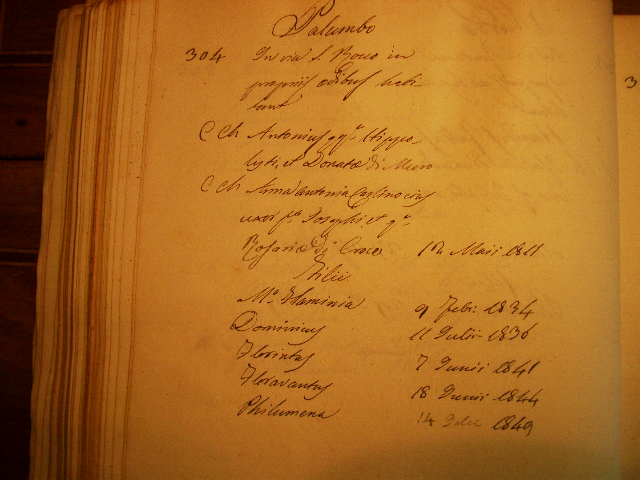 Palumbo
304 In via S. Rocco in
propriis ædibus habi-
tant
C Ch Antonius qq.m Hippo-
lyti, et Donatæ di Muro
C Ch Anna Antonia
uxor f.a Josephi, et q.m
Rosariæ di Croce 12 Maii 1811
Filii
M.a Flaminia 9 Febr: 1834
Dominicus 11 Julii 1836
Florintus 7 Junii 1841
Fioravantus 18 Junii 1844
Philumena 14 1849
3